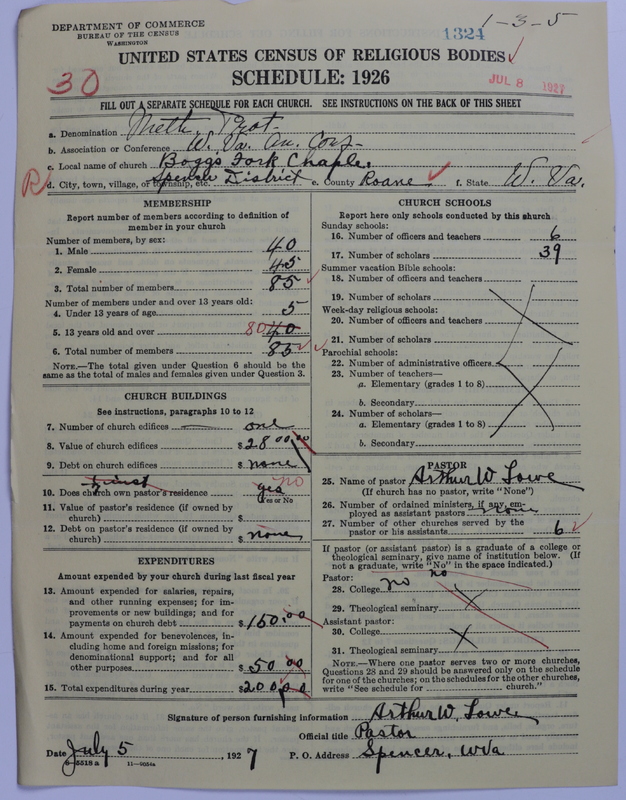 DEPARTMENT OF COMMERCE
BUREAU OF THE CENSUS
WASHINGTON
1-3-5
1324
UNITED STATES CENSUS OF RELIGIOUS BODIES
SCHEDULE: 1926
30
JUL 8 1927
FILL OUT A SEPARATE SCHEDULE FOR EACH CHURCH. SEE INSTRUCTIONS ON THE BACK OF THIS SHEET
a. Denomination Meth Prot.
b. Association or Conference W. Va. An. Conf.
c. Local name of church Boggs Fork Chaple.
R
d. City, town, village, or township, etc. Spencer District e. County Roane f. State W. Va.
MEMBERSHIP
Report number of members according to definition of member in your church
Number of members, by sex:
1. Male 40
2. Female 45
3. Total number of members 85
Number of members under and over 13 years old:
4. Under 13 years of age 5
5. 13 years old and over 80 40
6. Total number of members 85
NOTE.—The total given under Question 6 should be same as the total of males and females given under Question 3.
CHURCH BUILDINGS
See instructions, paragraphs 10 to 12
7. Number of church edifices one
8. Value of church edifices $2800.00
9. Debt on church edifices $none
10. Does church own pastor's residence yes no
Yes or No
11. Value of pastor's residence (if owned by church) $
12. Debt on pastor's residence (if owned by church) $none
EXPENDITURES
Amount expended by church during last fiscal year
13. Amount expended for salaries, repairs, and other running expenses; for improvements or new buildings; and for payments on church debt $150.00
14. Amount expended for benevolences, including home and foreign missions; for denominational support; and for all other purposes $50 00
15. Total expenditures during year $200.00
CHURCH SCHOOLS
Report here only schools conducted by this church
Sunday schools:
16. Number of officers and teachers 6
17. Number of scholars 39
Summer vacation Bible schools:
18. Number of officers and teachers
19. Number of scholars
Week-day religious schools:
20. Number of officers and teachers
21. Number of scholars
Parochial schools:
22. Number of administrative officers
23. Number of teachers—
a. Elementary (grades 1 to 8)
b. Secondary
24. Number of scholars—
a. Elementary (grades 1 to 8)
b. Secondary
PASTOR
25. Name of pastor Arthur W Lowe
(If church has no pastor, write "None")
26. Number of ordained ministers, if any, employed as assistant pastors none
27. Number of other churches served by the pastor or his assistants 6
If pastor (or assistant pastor) is a graduate of a college or theological seminary, give name of institution below. (If not a graduate, write "No" in the space indicated.)
Pastor: no
28. College no
29. Theological seminary
Assistant pastor:
30. College
31. Theological seminary
NOTE.—Where one pastor serves two or more churches, Questions 28 and 29 should be answered only on the schedule for one of the churches; on the schedules for the other churches, write "See schedule for church."
Signature of person furnishing information Arthur W. Lowe
Official title Pastor
Date July 5, 1927 P. O. Address Spencer, W Va
8-5518 a 11-9054a